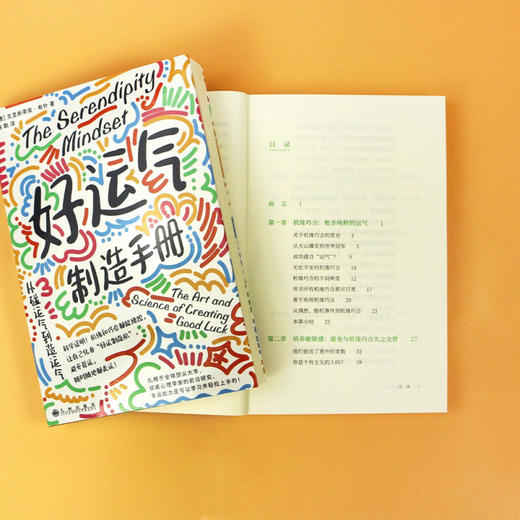 克里斯蒂安·布什 著
The Serendipity
Mindset
好运气
制造手册
The Art and
Science of Creating
Good Luck
从碰运气到造运气
科学证明！机缘和巧合都能操控，
让自己化身“好运制造机”
避免厄运，
随时随地都走运！
扎根于全球顶尖大学，
权威心理学家的前沿研究，
幸运能力是可以学习并轻松上手的！
目录
前言 1
第一章 机缘巧合：绝非纯粹的运气 1
关于机缘巧合的简史 3
从火山爆发到世界冠军 5
成功源自“运气”？ 7
无处不在的机缘巧合 10
机缘巧合的不同种类 12
并非所有机缘巧合都可归类 17
善于利用机缘巧合 19
从偶然、随机事件到机缘巧合 21
本章小结 25
第二章 培养敏锐感：避免与机缘巧合失之交臂 27
我们低估了意外的变数 32
你是个有主见的人吗？ 38